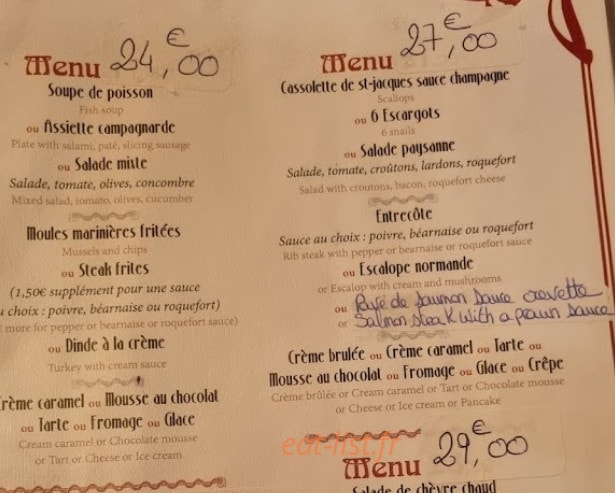 Menu 24,00 €
Soupe de poisson
Fish soup
ou Assiette campagnarde
Plate with salami, paté, slicing sausage
ou Salade mixte
Salade, tomate, olives, concombre
Mixed salad, tomato, olives, cucumber
Moules marinières fritées
Mussels and chips
ou Steak frites
(1,50€ supplément pour une sauce
choix : poivre, béarnaise ou roquefort)
more for pepper or bearnaise or roquefort sauce)
ou Dinde à la crème
Turkey with cream sauce
rème caramel ou Mousse au chocolat
ou Tarte ou Fromage ou Glace
Cream caramel or Chocolate mousse
or Tart or Cheese or Ice cream
Menu 27,00 €
Cassolette de st-jacques sauce champagne
Scallops
ou 6 Escargots
6 snails
ou Salade paysanne
Salade, tomate, croûtons, lardons, roquefort
Salad with croutons, bacon, roquefort cheese
Entrecôte
Sauce au choix : poivre, béarnaise ou roquefort
Rib steak with pepper or bearnaise or roquefort sauce
ou Escalope normande
or Escalop with cream and mushrooms
ou Pavé de saumon sauce crevette
or Salmon steak with a prawn sauce
Crème brulée ou Crème caramel ou Tarte ou
Mousse au chocolat ou Fromage ou Glace ou Crêpe
Crème brûlée or Cream caramel or Tart or Chocolate mousse
or Cheese or Ice cream or Pancake
eat-list.fr
Menu 29,00 €
Salade de chèvre chaud